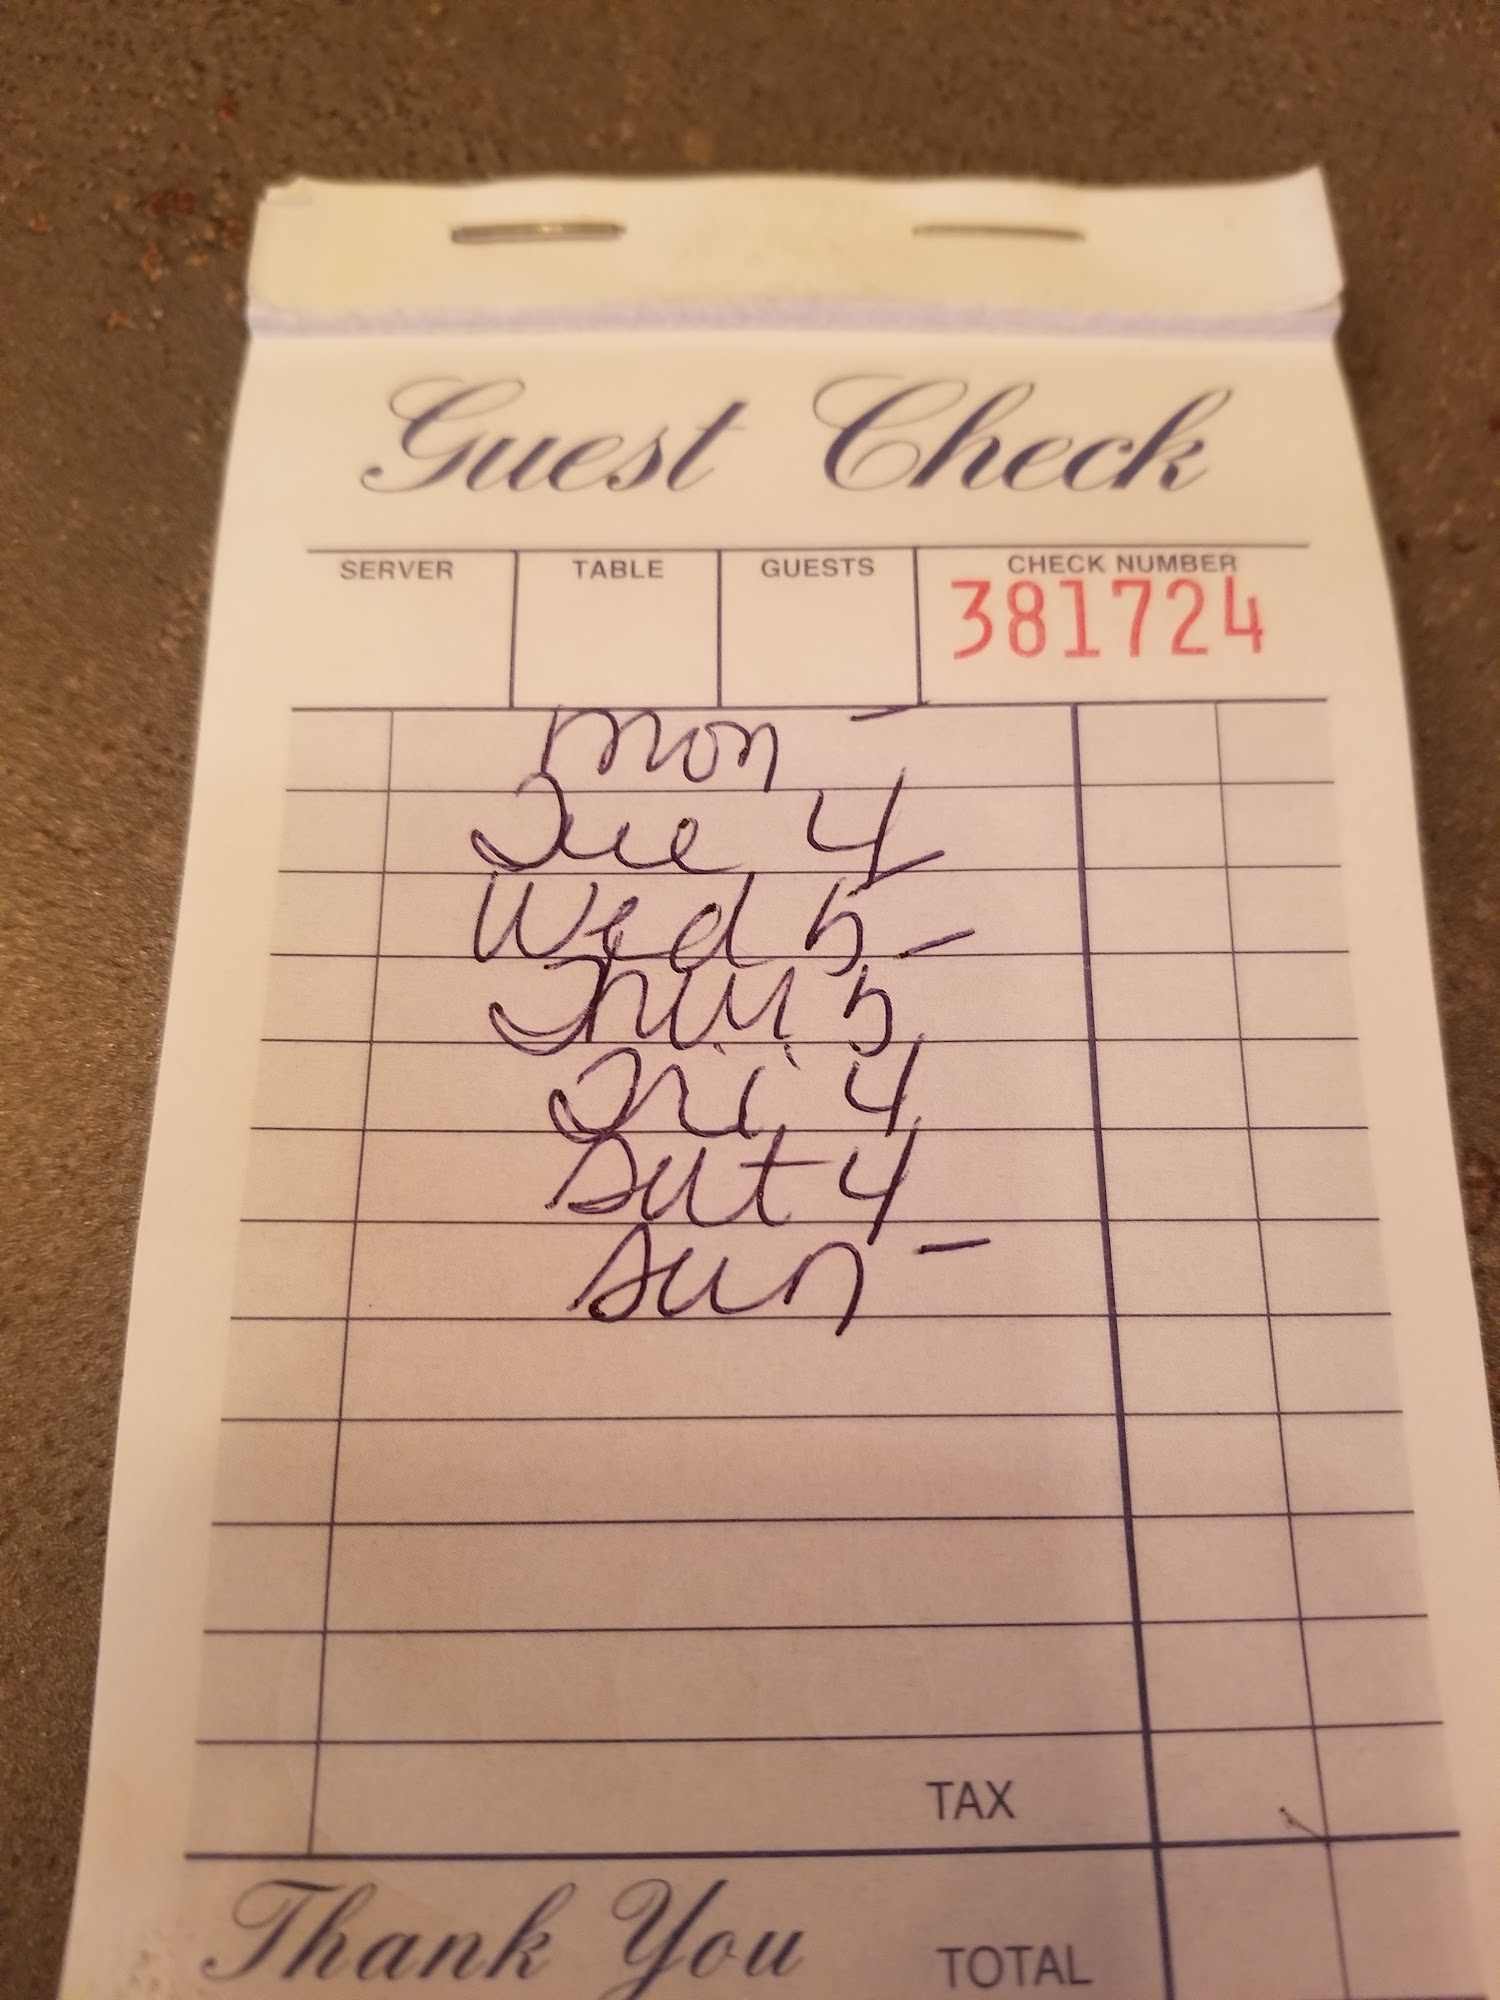 Guest Check
SERVER TABLE GUESTS CHECK NUMBER
381724
Mon -
Tue 4 -
Wed 5 -
Thur 5
Fri 4
Sat 4
Sun -
TAX
Thank You TOTAL